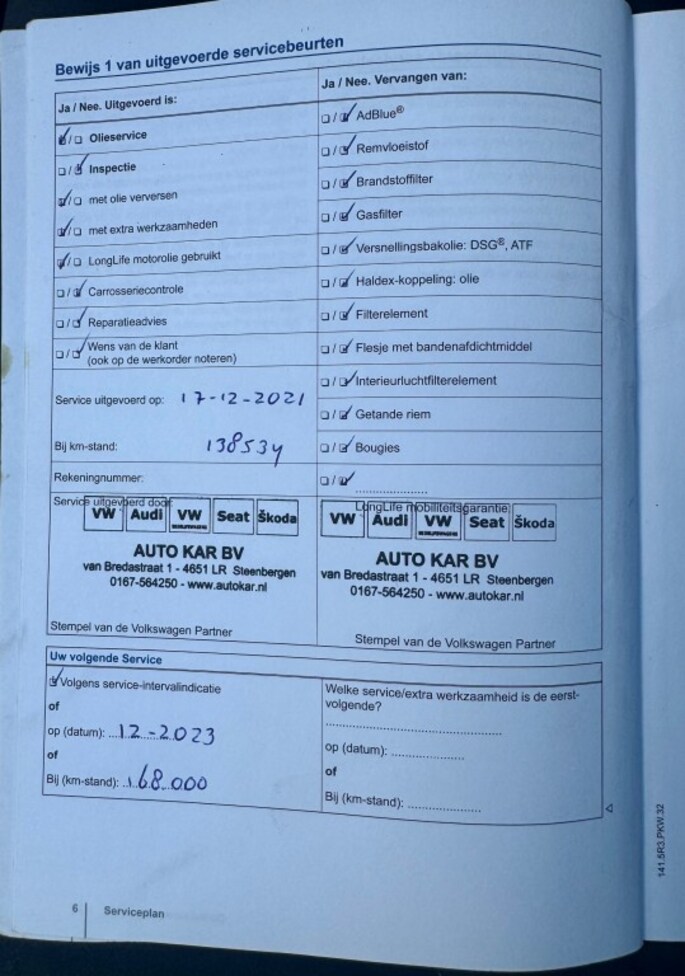 Bewijs 1 van uitgevoerde servicebeurten
Ja / Nee. Uitgevoerd is:
Olieservice
Inspectie
met olie verversen
met extra werkzaamheden
LongLife motorolie gebruikt
Carrosseriecontrole
Reparatieadvies
Wens van de klant
(ook op de werkorder noteren)
Service uitgevoerd op: 17-12-2021
Bij km-stand: 138534
Rekeningnummer:
Ja / Nee. Vervangen van:
AdBlue®
Remvloeistof
Brandstoffilter
Gasfilter
Versnellingsbakolie: DSG®, ATF
Haldex-koppeling: olie
Filterelement
Flesje met bandenafdichtmiddel
Interieurluchtfilterelement
Getande riem
Bougies
Service uitgevoerd door:
VW Audi VW Seat Škoda
AUTO KAR BV
van Bredastraat 1 - 4651 LR Steenbergen
0167-564250 - www.autokar.nl
Stempel van de Volkswagen Partner
LongLife mobiliteitsgarantie:
VW Audi VW Seat Škoda
AUTO KAR BV
van Bredastraat 1 - 4651 LR Steenbergen
0167-564250 - www.autokar.nl
Stempel van de Volkswagen Partner
Uw volgende Service
Volgens service-intervalindicatie
of
op (datum): 12-2023
of
Bij (km-stand): 168.000
Welke service/extra werkzaamheid is de eerst-
volgende?
op (datum):
of
Bij (km-stand):
141.5R3.PKW.32
6 Serviceplan